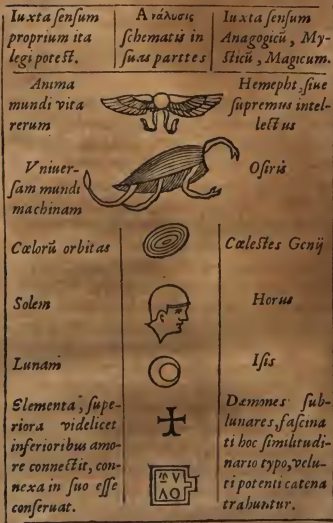 Iuxta ſenſum
proprium ita
legi poteſt.
Διάλυσις
ſchematis in
ſuas parttes
Iuxta ſenſum
Anagogicũ, My-
ſticũ, Magicum.
Anima
mundi vita
rerum
Hemepht, ſiue
ſupremus intel-
lectus
Vniuer-
ſam mundi
machinam
Oſiris
Cœlorũ orbitas
Cæleſtes Genij
Solem
Horus
Lunam
Iſis
Elementa, ſupe-
riora videlicet
inferioribus amo-
re connectit, con-
nexa in ſuo eſſe
conſeruat.
Dæmones ſub-
lunares, faſcina
ti hoc ſimilitudi-
nario typo, velu-
ti potenti catena
trahuntur.